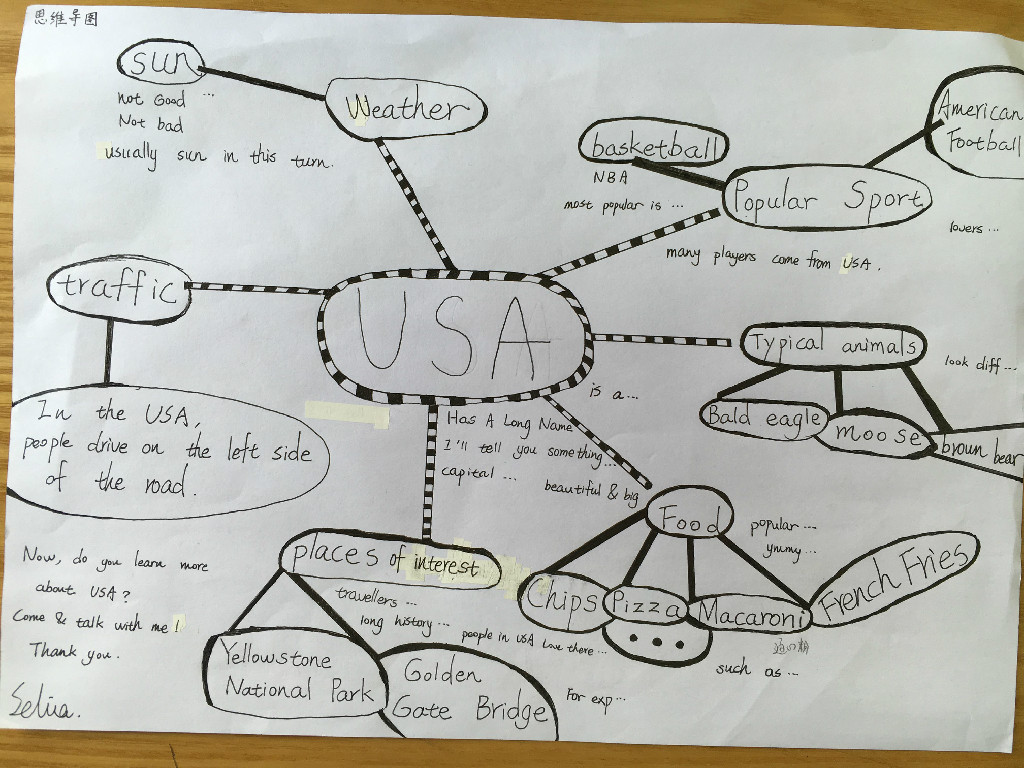 思维导图
sun
not Good ...
Not bad
usually sun in this turn.
Weather
basketball
NBA
most popular is ...
Popular Sport
American
Football
lovers ...
many players come from USA.
traffic
In the USA,
people drive on the left side
of the road.
USA
Typical animals
look diff ...
Bald eagle
moose
brown bear
is a...
Has A Long Name
I'll tell you something...
capital ...
beautiful & big
Food
popular ...
ynmy...
Chips
Pizza
Macaroni
French Fries
...
such as ...
places of interest
travellers ...
long history...
people in USA Love there...
Yellowstone
National Park
Golden
Gate Bridge
For exp...
Now, do you learn more
about USA?
Come & talk with me!
Thank you.